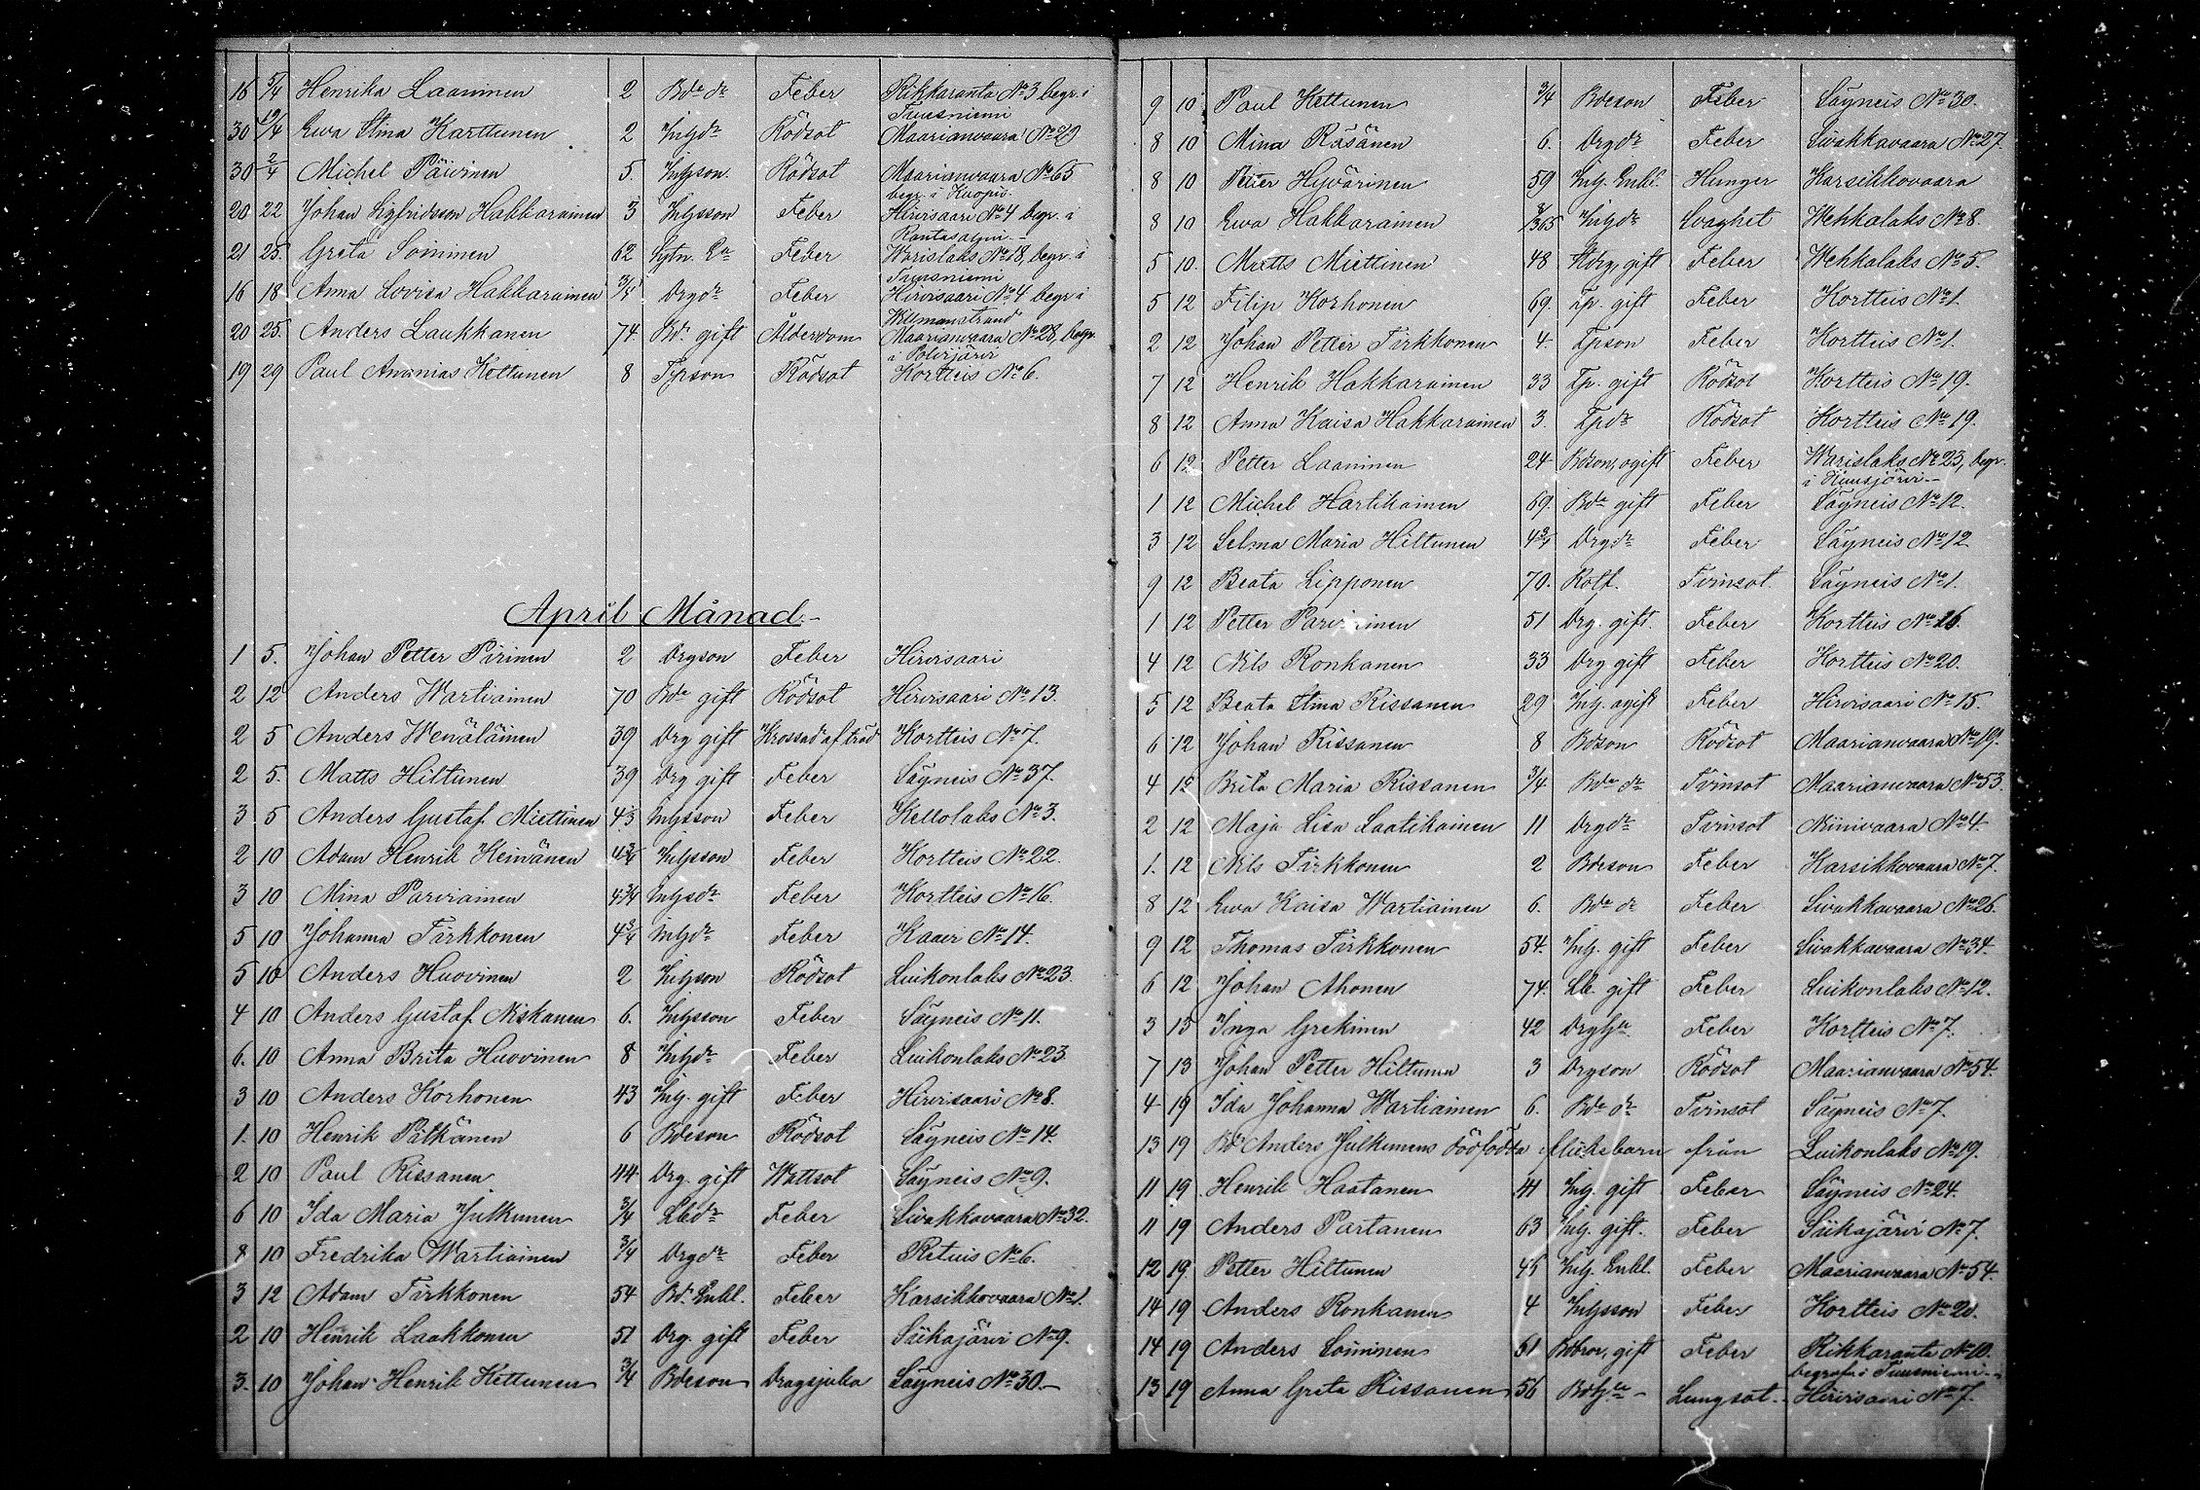 16 5/4 Henrika Laaninen 2 Bda dr Feber Rikkaranta No 3 begr. i Tuusniemi
30 12/4 Ewa Stina Karttunen 2 Inhdr Rödsot Maarianvaara No 29
30 2/4 Michel Päivinen 5. Inhson Rödsot Maarianvaara No 65 begr. i Kuopio.
20 22 Johan Sigfridsson Hakkarainen 3 Inhsson Feber Hirvisaari No 4 begr. i Rantasalmi.-
21 25. Greta Soininen 62 Feber Warislaks No 18, begr. i Tuusniemi
16 18 Anna Lovisa Hakkarainen 3/4 Drgdr Feber Hirvisaari No 4 begr i Willmanstrand
20 25. Anders Laukkanen 74. Bd. gift Ålderdom Maarianvaara No 28, begr. i Polvijärvi
19 29 Paul Ananias Kettunen 8 Tpson Rödsot Kortteis No 6.
April Månad.-
1 5. Johan Petter Pirinen 2 Drgson Feber Hirvisaari
2 12 Anders Wartiainen 70 Bda gift Rödsot Hirvisaari No 13.
2 5 Anders Wenäläinen 39 Drg gift Krossad af träd Kortteis No 7.
2 5. Matts Hiltunen 39 Drg gift Feber Säyneis No 37.
3 5 Anders Gustaf Miettinen Inhsson Feber Kettolaks No 3.
2 10 Adam Henrik Keinänen Inhsson Feber Kortteis No 22.
3 10 Mina Parviainen Inhsdr Feber Kortteis No 16.
5 10 Johanna Tirkkonen Inhdr Feber Kaavi No 14.
5 10 Anders Huovinen 2 Inhson Rödsot Luikonlaks No 23.
4 10 Anders Gustaf Niskanen 6. Inhsson Feber Säyneis No 11.
6. 10 Anna Brita Huovinen 8 Inhdr Feber Luikonlaks No 23
3 10 Anders Korhonen 43 Inh. gift Feber Hirvisaari No 8.
1. 10 Henrik Pätkänen 6 Bdeson Rödsot Säyneis No 14.
2 10 Paul Rissanen 44 Drg. gift Wattsot Säyneis No 9.
6 10 Ida Maria Julkunen 3/4 Lbdr Feber Sivakkavaara No 32.
8 10 Fredrika Wartiainen 3/4 Drgdr Feber Retuis No 6.
3 12 Adam Tirkkonen 54 Bd. Enkl. Feber Karsikkovaara No 1.
2 10 Henrik Laakkonen 51 Drg. gift Feber Siikajärvi No 9.
3. 10 Johan Henrik Kettunen 3/4 Bdeson Dragsjuka Säyneis No 30.-
9 10 Paul Kettunen 3/4 Bdeson Feber Säyneis No 30.
8 10 Mina Räsänen 6. Drgdr Feber Sivakkavaara No 27.
8 10 Petter Hyvärinen 59 Inh. Enkl. Hunger Karsikkovaara
8 10 Ewa Hakkarainen Inhdr Svaghet Wehkalaks No 8.
5 10. Matts Miettinen 48 gift Feber Wehkalaks No 5.
5 12 Filip Korhonen 69. Tp. gift Feber Kortteis No 1.
2 12 Johan Petter Tirkkonen 4. Tpson Feber Kortteis No 1.
7 12 Henrik Hakkarainen 33 Tp. gift Rödsot Kortteis No 19.
8 12 Anna Kaisa Hakkarainen 3. Tpdr Rödsot Kortteis No 19.
6 12 Petter Laaninen 24 Bdson, ogift Feber Warislaks No 23, begr. i Kuusjärvi.-
1 12 Michel Hartikainen 69. Bda gift Feber Säyneis No 12.
3 12 Selma Maria Hiltunen Drgdr Feber Säyneis No 12
9 12 Beata Lipponen 70. Rotf. Tvinsot Säyneis No 1.
1 12 Petter Parviainen 51 Drg. gift. Feber Kortteis No 26.
4 12 Nils Ronkanen 33 Drg gift Feber Kortteis No 20.
5 12 Beata Stina Rissanen 29 Inh. ogift Feber Hirvisaari No 15.
6 12 Johan Rissanen 8 Bdson Rödsot Maarianvaara No 19.
4 12 Brita Maria Rissanen 3/4 Bda dr Tvinsot Maarianvaara No 53.
2 12 Maja Lisa Laatikainen 11 Drgdr Tvinsot Niinivaara No 4.
1. 12 Nils Tirkkonen 2 Bdeson Feber Karsikkovaara No 7.
8 12 Ewa Kaisa Wartiainen 6. Bda dr Feber Sivakkavaara No 26.
9 12 Thomas Tirkkonen 54. Inh. gift Feber Sivakkavaara No 34.
6 12 Johan Ahonen 74. Lb. gift Feber Luikonlaks No 12.
3 13 Inga Grekinen 42 Feber Kortteis No 7.
7 13 Johan Petter Hiltunen 3 Drgson Rödsot Maarianvaara No 54.
4 19 Ida Johanna Wartiainen 6. Bda dr Tvinsot Säyneis No 7.
13 19 Bd. Anders Julkunens dödfödda flicksbarn från Luikonlaks No 19.
11 19. Henrik Haatanen 41 Inh. gift Feber Säyneis No 24.
11 19 Anders Partanen 63 Inh. gift. Feber Siikajärvi No 7.
12 19. Petter Hiltunen 45 Inh. Enkl. Feber Maarianvaara No 54.
14 19 Anders Ronkanen 4 Inhsson Feber Kortteis No 20.
14 19 Anders Soininen 51 Bdbror, gift Feber Rikkaranta No 10. begrafv. i Tuusniemi.-
13 19 Anna Greta Rissanen 56 Lungsot.- Hirvisaari No 7.